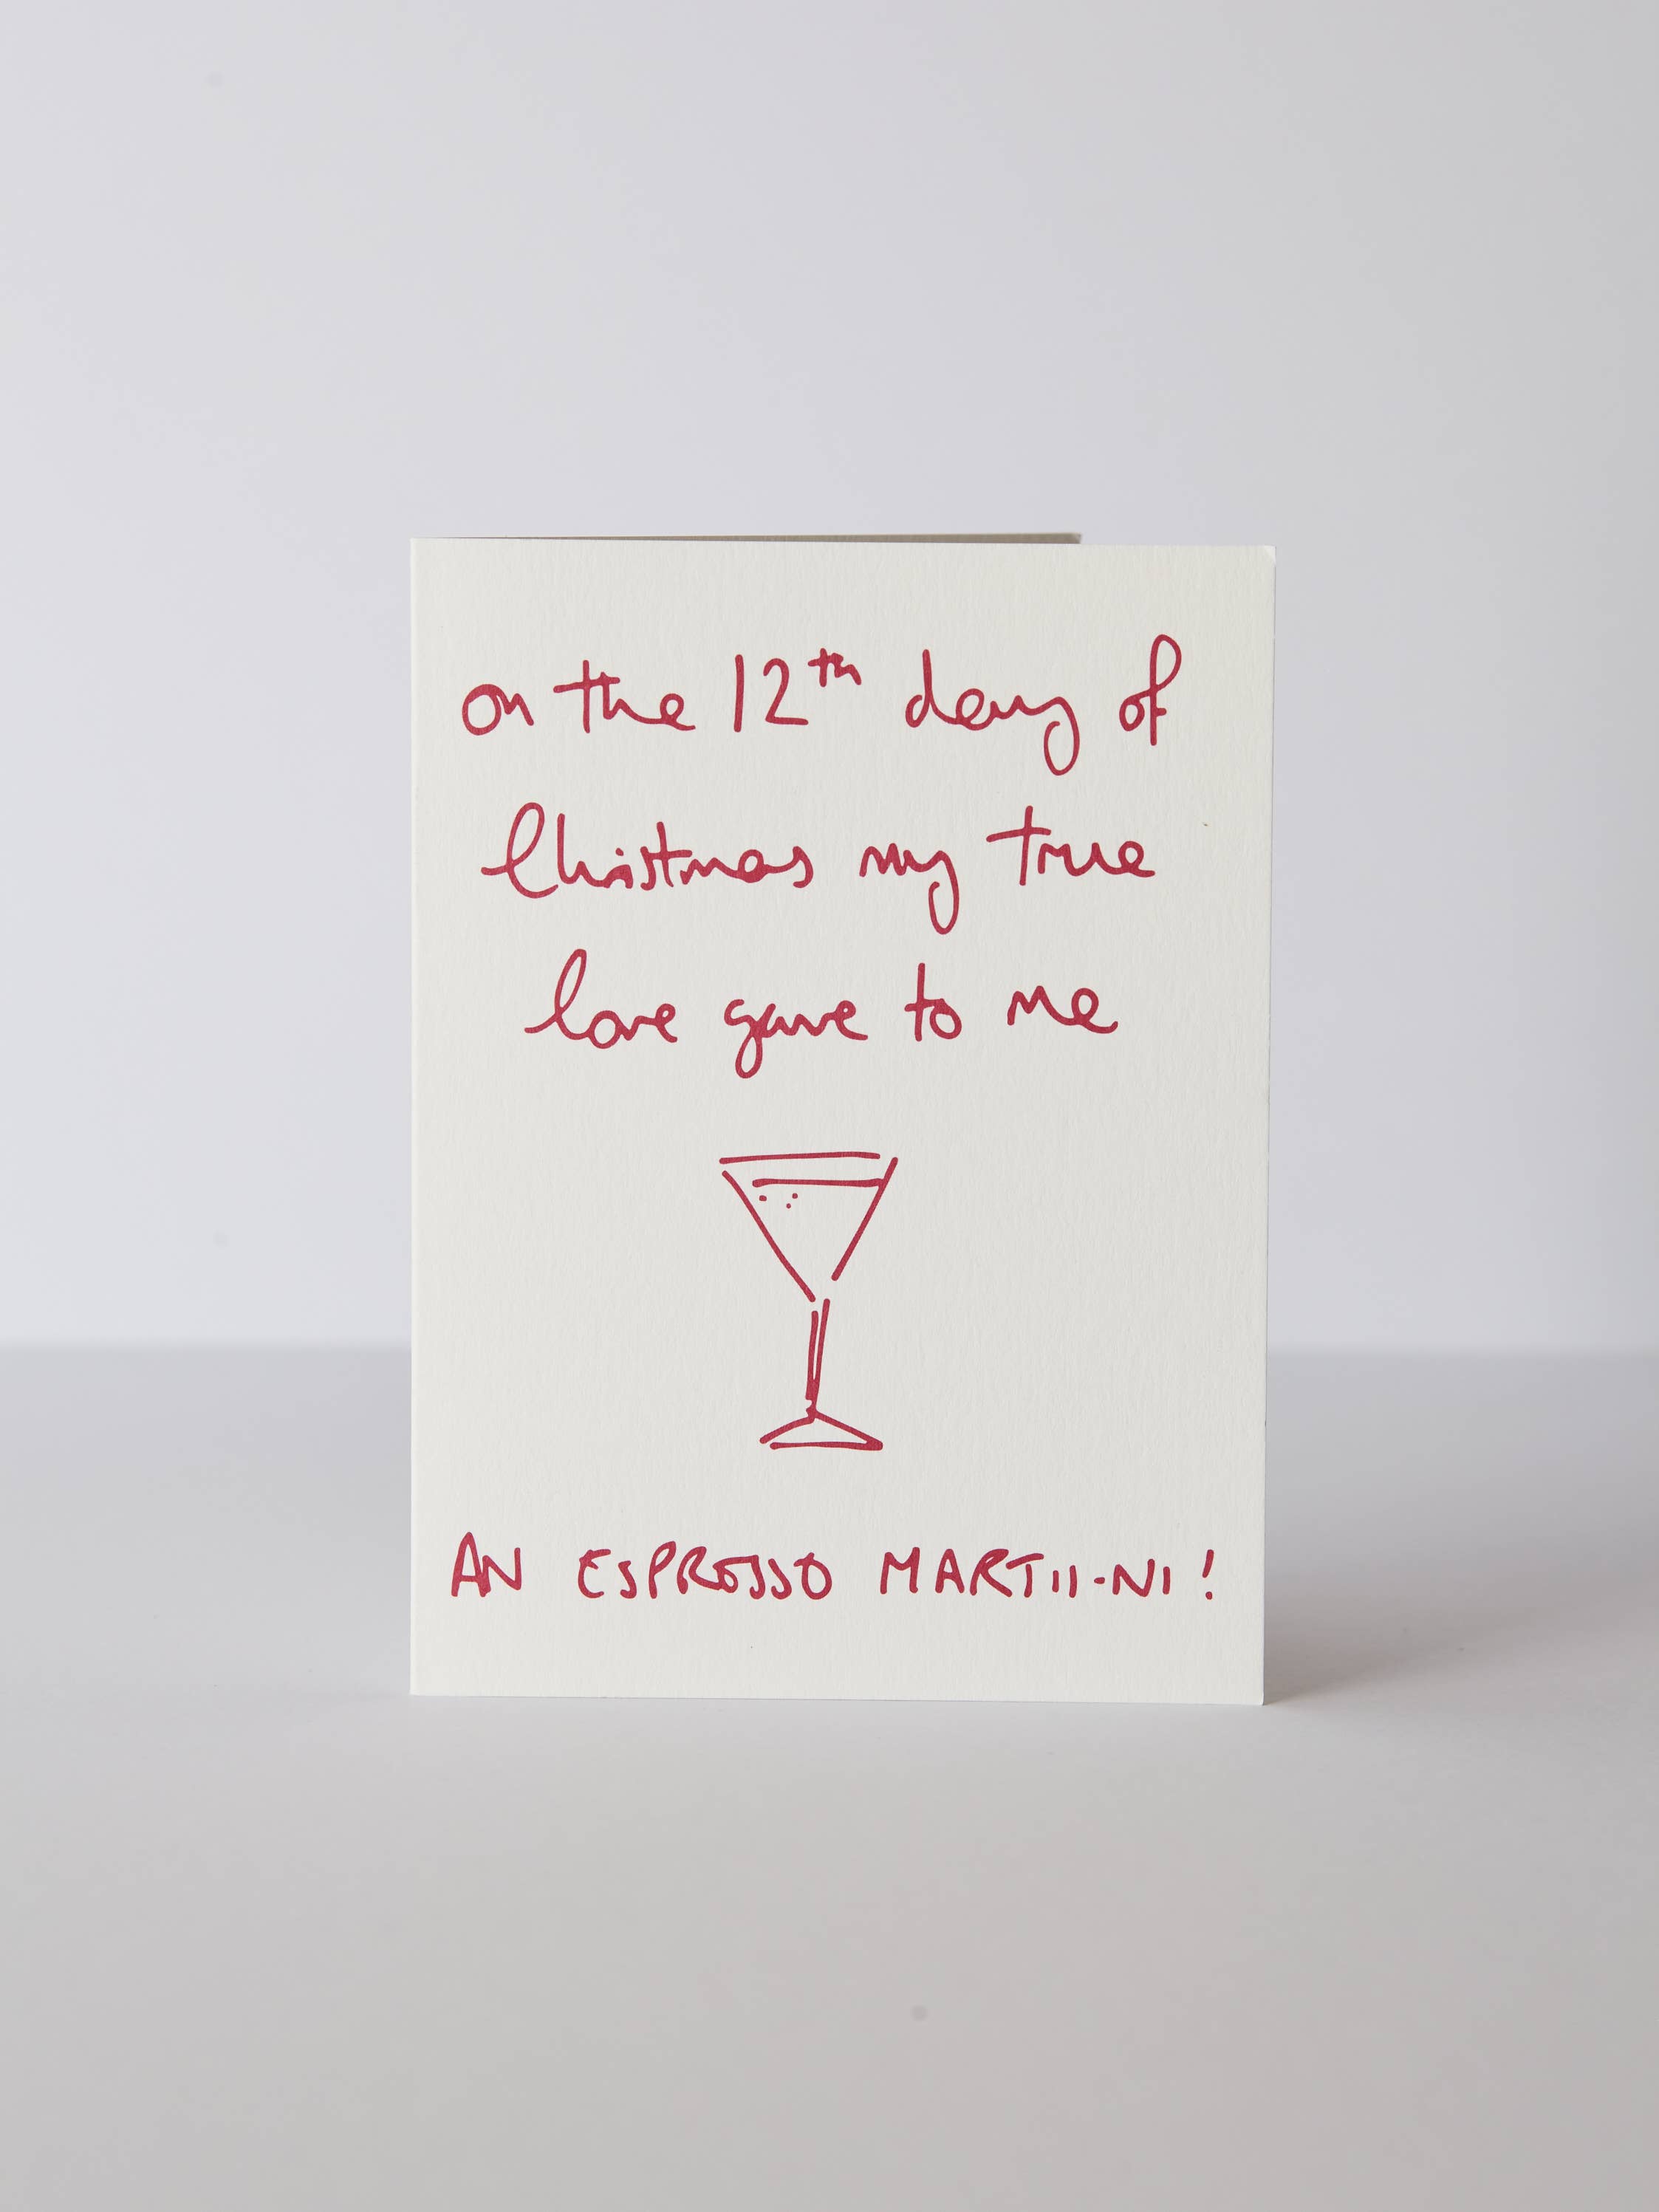 on the 12th day of
Christmas my true
love gave to me
AN ESPRESSO MARTIII-NI!